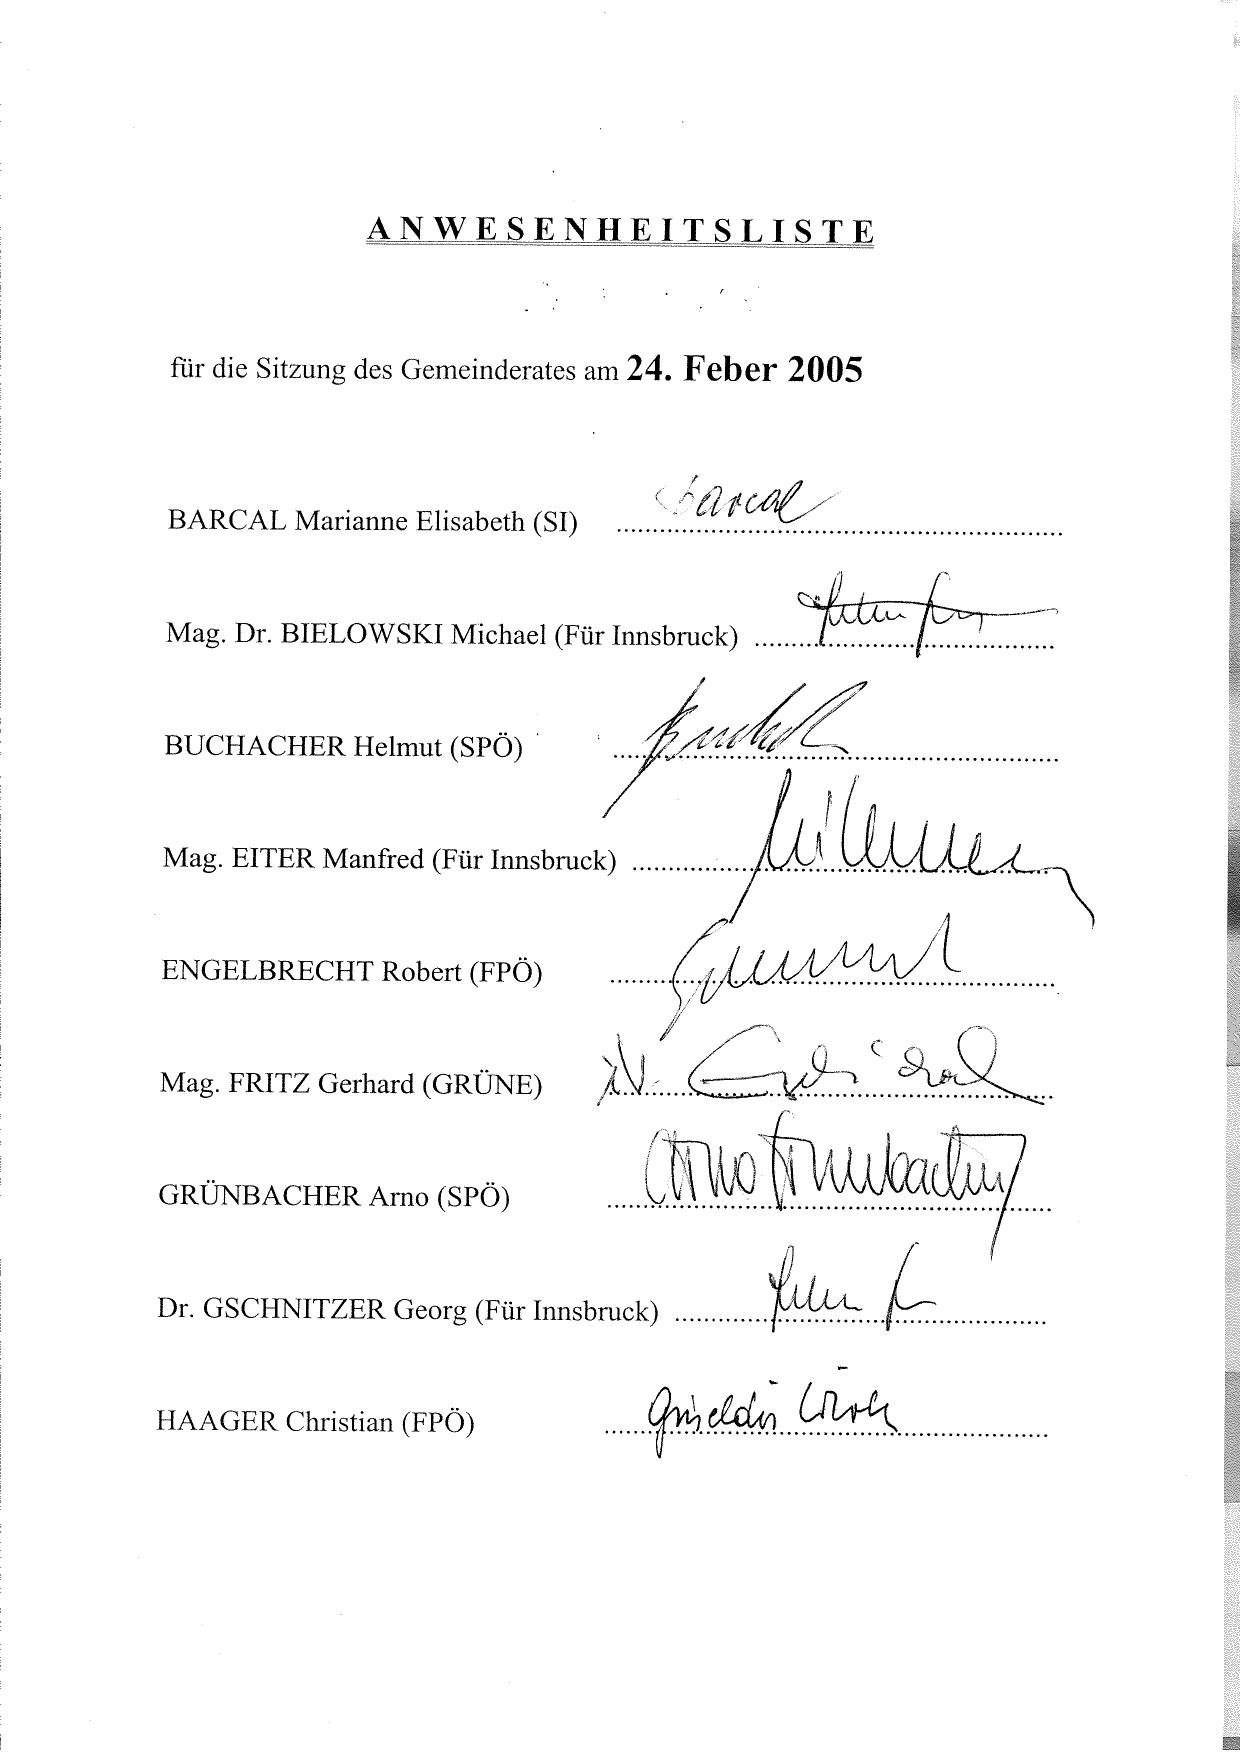 ANWESENHEITSLISTE
für die Sitzung des Gemeinderates am 24. Feber 2005
BARCAL Marianne Elisabeth (SI) Barcal
Mag. Dr. BIELOWSKI Michael (Für Innsbruck)
BUCHACHER Helmut (SPÖ)
Mag. EITER Manfred (Für Innsbruck)
ENGELBRECHT Robert (FPÖ)
Mag. FRITZ Gerhard (GRÜNE)
GRÜNBACHER Arno (SPÖ) Arno Grünbacher
Dr. GSCHNITZER Georg (Für Innsbruck)
HAAGER Christian (FPÖ) Griseldis